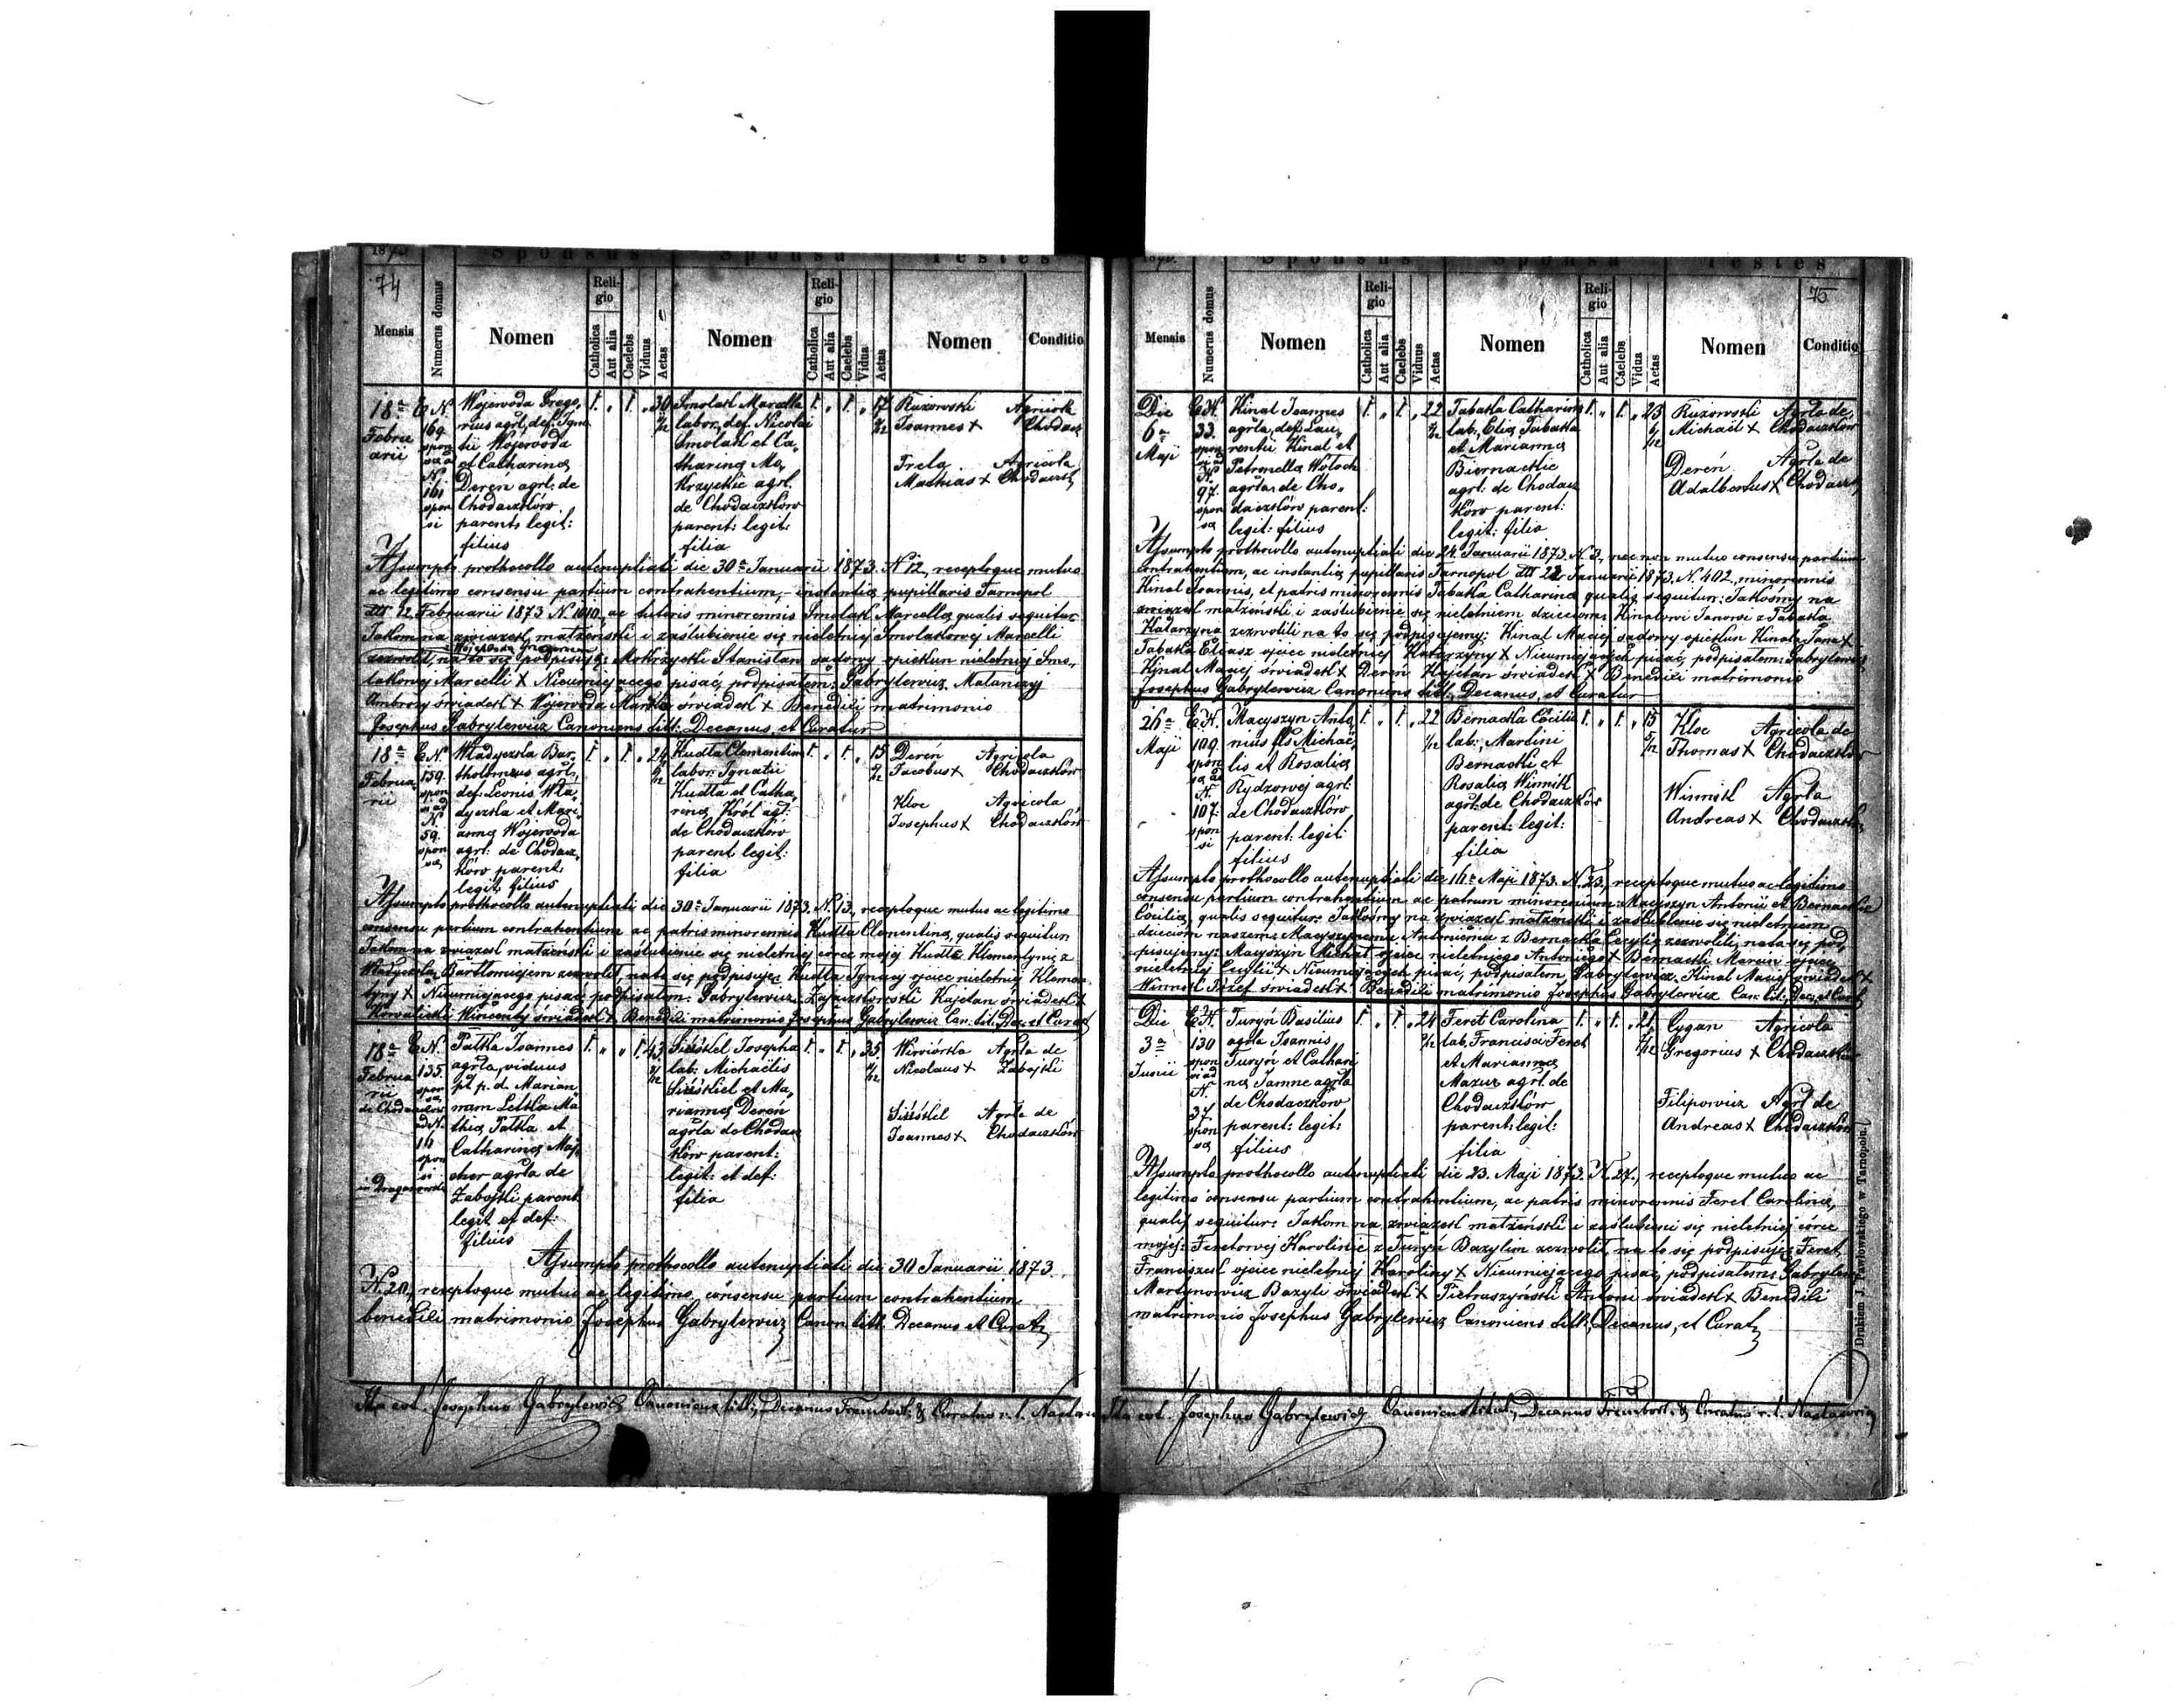 1873 Sponsus Sponsa Testes
74
Mensis
Numerus domus
Nomen
Religio
Catholica
Aut alia
Caelebs
Viduus
Aetas
Nomen
Religio
Catholica
Aut alia
Caelebs
Vidua
Aetas
Nomen
Conditio
18a Februarii
E N. 169 sponsa ad N 161 sponsi
Wojewoda Grego,
rius agrl, def: Igna
tii Wojewoda
et Catharina
Dereń agrl: de
Chodaczków
parent: legit:
filius
30
Smolak Marcella
labor, def. Nicolai
Smolak et Ca,
tharina Mo,
krzyckie agrl.
de Chodaczków
parent: legit:
filia
17
Ruzowski Agricola
Joannes + Chodacz
Trela Agricola
Mathias + Chodaczk
Assumpto prothocollo antenuptiali die 30a Januarii 1873 N 12, receptoque mutuo
ac legitimo consensu partium contrahentium, instantia pupillaris Tarnopol
22 Februarii 1873 N. 1010, ac tutoris minorennis Smolak Marcella qualis sequitur
Jakom na związek małżeński i zaślubienie się nieletniej Smolakowej Marcelli
z Wojewodą Grzegorzem
zezwolił, na to się podpisuję: Mokrzycki Stanisław sądowy opiekun nieletniej Smo,
lakowej Marcelli + Nieumiejącego pisać, podpisałem: Gabrylewicz.
Ambroży świadek + Wojewoda świadek + Benedixi matrimonio
Josephus Gabrylewicz Canonicus tit: Decanus, et Curatus
18a Februarii
E N. 159 sponsi ad N 59. sponsa
Władyczka Bar,
tholomeus agrl,
def: Leonis Wła,
dyczka et Mari,
anna Wojewoda
agrl: de Chodacz,
ków parent:
legit: filius
24
Kudła Clementina
labor: Ignatii
Kudła et Catha,
rina Król agrl:
de Chodaczków
parent legit:
filia
15
Dereń Agricola
Jacobus + Chodaczków
Kloc Agricola
Josephus + Chodaczków
Assumpto prothocollo antenuptiali die 30a Januarii 1873. N. 13, receptoque mutuo ac legitimo
consensu partium contrahentium ac patris minorennis Kudła Clementina, qualis sequitur
Jakom na związek małżeński i zaślubienie się nieletniej córce mojej Kudła Klementyną z
Władyczką Bartłomiejem zezwolił, na to się podpisuję Kudła Ignacy ojciec nieletniej Klemen
tyny + Nieumiejącego pisać podpisałem: Gabrylewicz. Kajetan świadek +
Kowalicki Wincenty świadek + Benedixi matrimonio Josephus Gabrylewicz Can: tit. Dec. et Curat
18a Februarii de Chodaczków
E N. 135. sponsa ad N. 16 sponsi
Pałka Joannes
agrla, viduus
pt p. d. Marian
nam Letka Ma
thia Pałka et
Catharina Maj
cher agrla de
Zabojki parent
legit et def:
filius
43
Siuśkel Josepha
lab: Michaelis
Siuśkiel et Ma,
rianna Dereń
agrla de Chodacz
ków parent:
legit: et def:
filia
35
Wiwiórka Agrla de
Nicolaus + Zabojki
Siuśkel Agrla de
Joannes + Chodaczków
Assumpto prothocollo antenuptiali die 30 Januarii 1873.
N. 20, receptoque mutuo ac legitimo consensu partium contrahentium
benedixi matrimonio Josephus Gabrylewicz Canon tit. Decanus et Curat
Ita est. Josephus Gabrylewicz Canonicus tit:, Decanus Trembowl: & Curatus r. l.
1873. Sponsus Sponsa Testes
75
Mensis
Numerus domus
Nomen
Religio
Catholica
Aut alia
Caelebs
Viduus
Aetas
Nomen
Religio
Catholica
Aut alia
Caelebs
Vidua
Aetas
Nomen
Conditio
Die 6a Maji
E N. 33. sponsi ad N. 97. sponsa
Kinal Joannes
agrla, def: Lau,
rentii Kinal et
Petronella Wołoch
agrla de Cho,
daczków parent:
legit: filius
22
Tabaka Catharina
lab, Elia Tabaka
et Marianna
Biernackie
agrl: de Chodacz
ków parent:
legit: filia
23
Ruzowski Agrla de
Michael + Chodaczków
Dereń Agrla de
Adalbertus + Chodaczk
Assumpto prothocollo antenuptiali die 24 Januarii 1873 N. 3, nec non mutuo consensu partium
contrahentium, ac instantia pupillaris Tarnopol 22 Januarii 1873. N. 402, minorennis
Kinal Joannis, et patris minorennis Tabaka Catharina qualis sequitur: Jakośmy na
związek małżeński i zaślubienie się nieletniem dzieciom: Kinalowi Janowi z Tabaka
Katarzyna zezwolili na to się podpisujemy: Kinal Maciej sądowy opiekun Kinala Jana +
Tabaka Eliasz ojciec nieletniej Katarzyny + Nieumiejących pisać, podpisałem: Gabrylewicz
Kinal Maciej świadek + Dereń Kajetan świadek + Benedixi matrimonio
Josephus Gabrylewicz Canonicus tit:, Decanus, et Curatus
26a Maji
E N. 109. sponsa ad N. 107. sponsi
Macyszyn Anto,
nius fls Michaë,
lis et Rosalia
Rydzowej agrl:
de Chodaczków
parent: legit:
filius
22
Bernacka Cäcilia
lab:, Martini
Bernacki et
Rosalia Winnik
agrl: de Chodaczków
parent: legit:
filia
15
Kloc Agricola de
Thomas + Chodaczków
Winnik Agrla
Andreas + Chodaczków
Assumpto prothocollo antenuptiali die 16a Maji 1873. N. 23, receptoque mutuo ac legitimo
consensu partium contrahentium ac patrum minorennium: Macyszyn Antonii et Bernackiej
Cäcilia, qualis sequitur: Jakośmy na związek małżeński i zaślubienie się nieletniem
dzieciom naszem: Macyszynemu Antoniemu z Bernacką Cecylią zezwolili, na to się pod,
pisujemy: Macyszyn Michał ojciec nieletniego Antoniego + Bernacki Marcin ojciec
nieletniej Cecylii + Nieumiejących pisać, podpisałem Gabrylewicz. Kinal Maciej świadek +
Winnik Józef świadek + Benedixi matrimonio Josephus Gabrylewicz Can: tit: Dec, et Curat
Die 3a Junii
E N. 130 sponsi ad N. 37. sponsa
Turyń Basilius
agrla Joannis
Turyń et Cathari
na Jamne agrla
de Chodaczków
parent: legit:
filius
24
Feret Carolina
lab, Francisci Feret
et Marianna
Mazur agrl. de
Chodaczków
parent: legit:
filia
21
Cygan Agricola
Gregorius + Chodaczków
Filipowicz Agrl de
Andreas + Chodaczków
Assumpto prothocollo antenuptiali die 23. Maji 1873. N. 27, receptoque mutuo ac
legitimo consensu partium contrahentium, ac patris minorennis Feret Carolina,
qualis sequitur: Jakom na związek małżeński i zaślubieni się nieletniej córce
mojej: Feretowej Karolinie z Turyń Bazylim zezwolił, na to się podpisuję: Feret
Franciszek ojciec nieletniej Karoliny + Nieumiejącego pisać, podpisałem: Gabrylew
Martynowicz Bazyli świadek + Pietraszyński Antoni świadek + Benedixi
matrimonio Josephus Gabrylewicz Canonicus tit:, Decanus, et Curat
Drukiem J. Pawłowskiego w Tarnopolu.
Ita est. Josephus Gabrylewicz Canonicus titul:, Decanus Trembowl: & Curatus r. l.